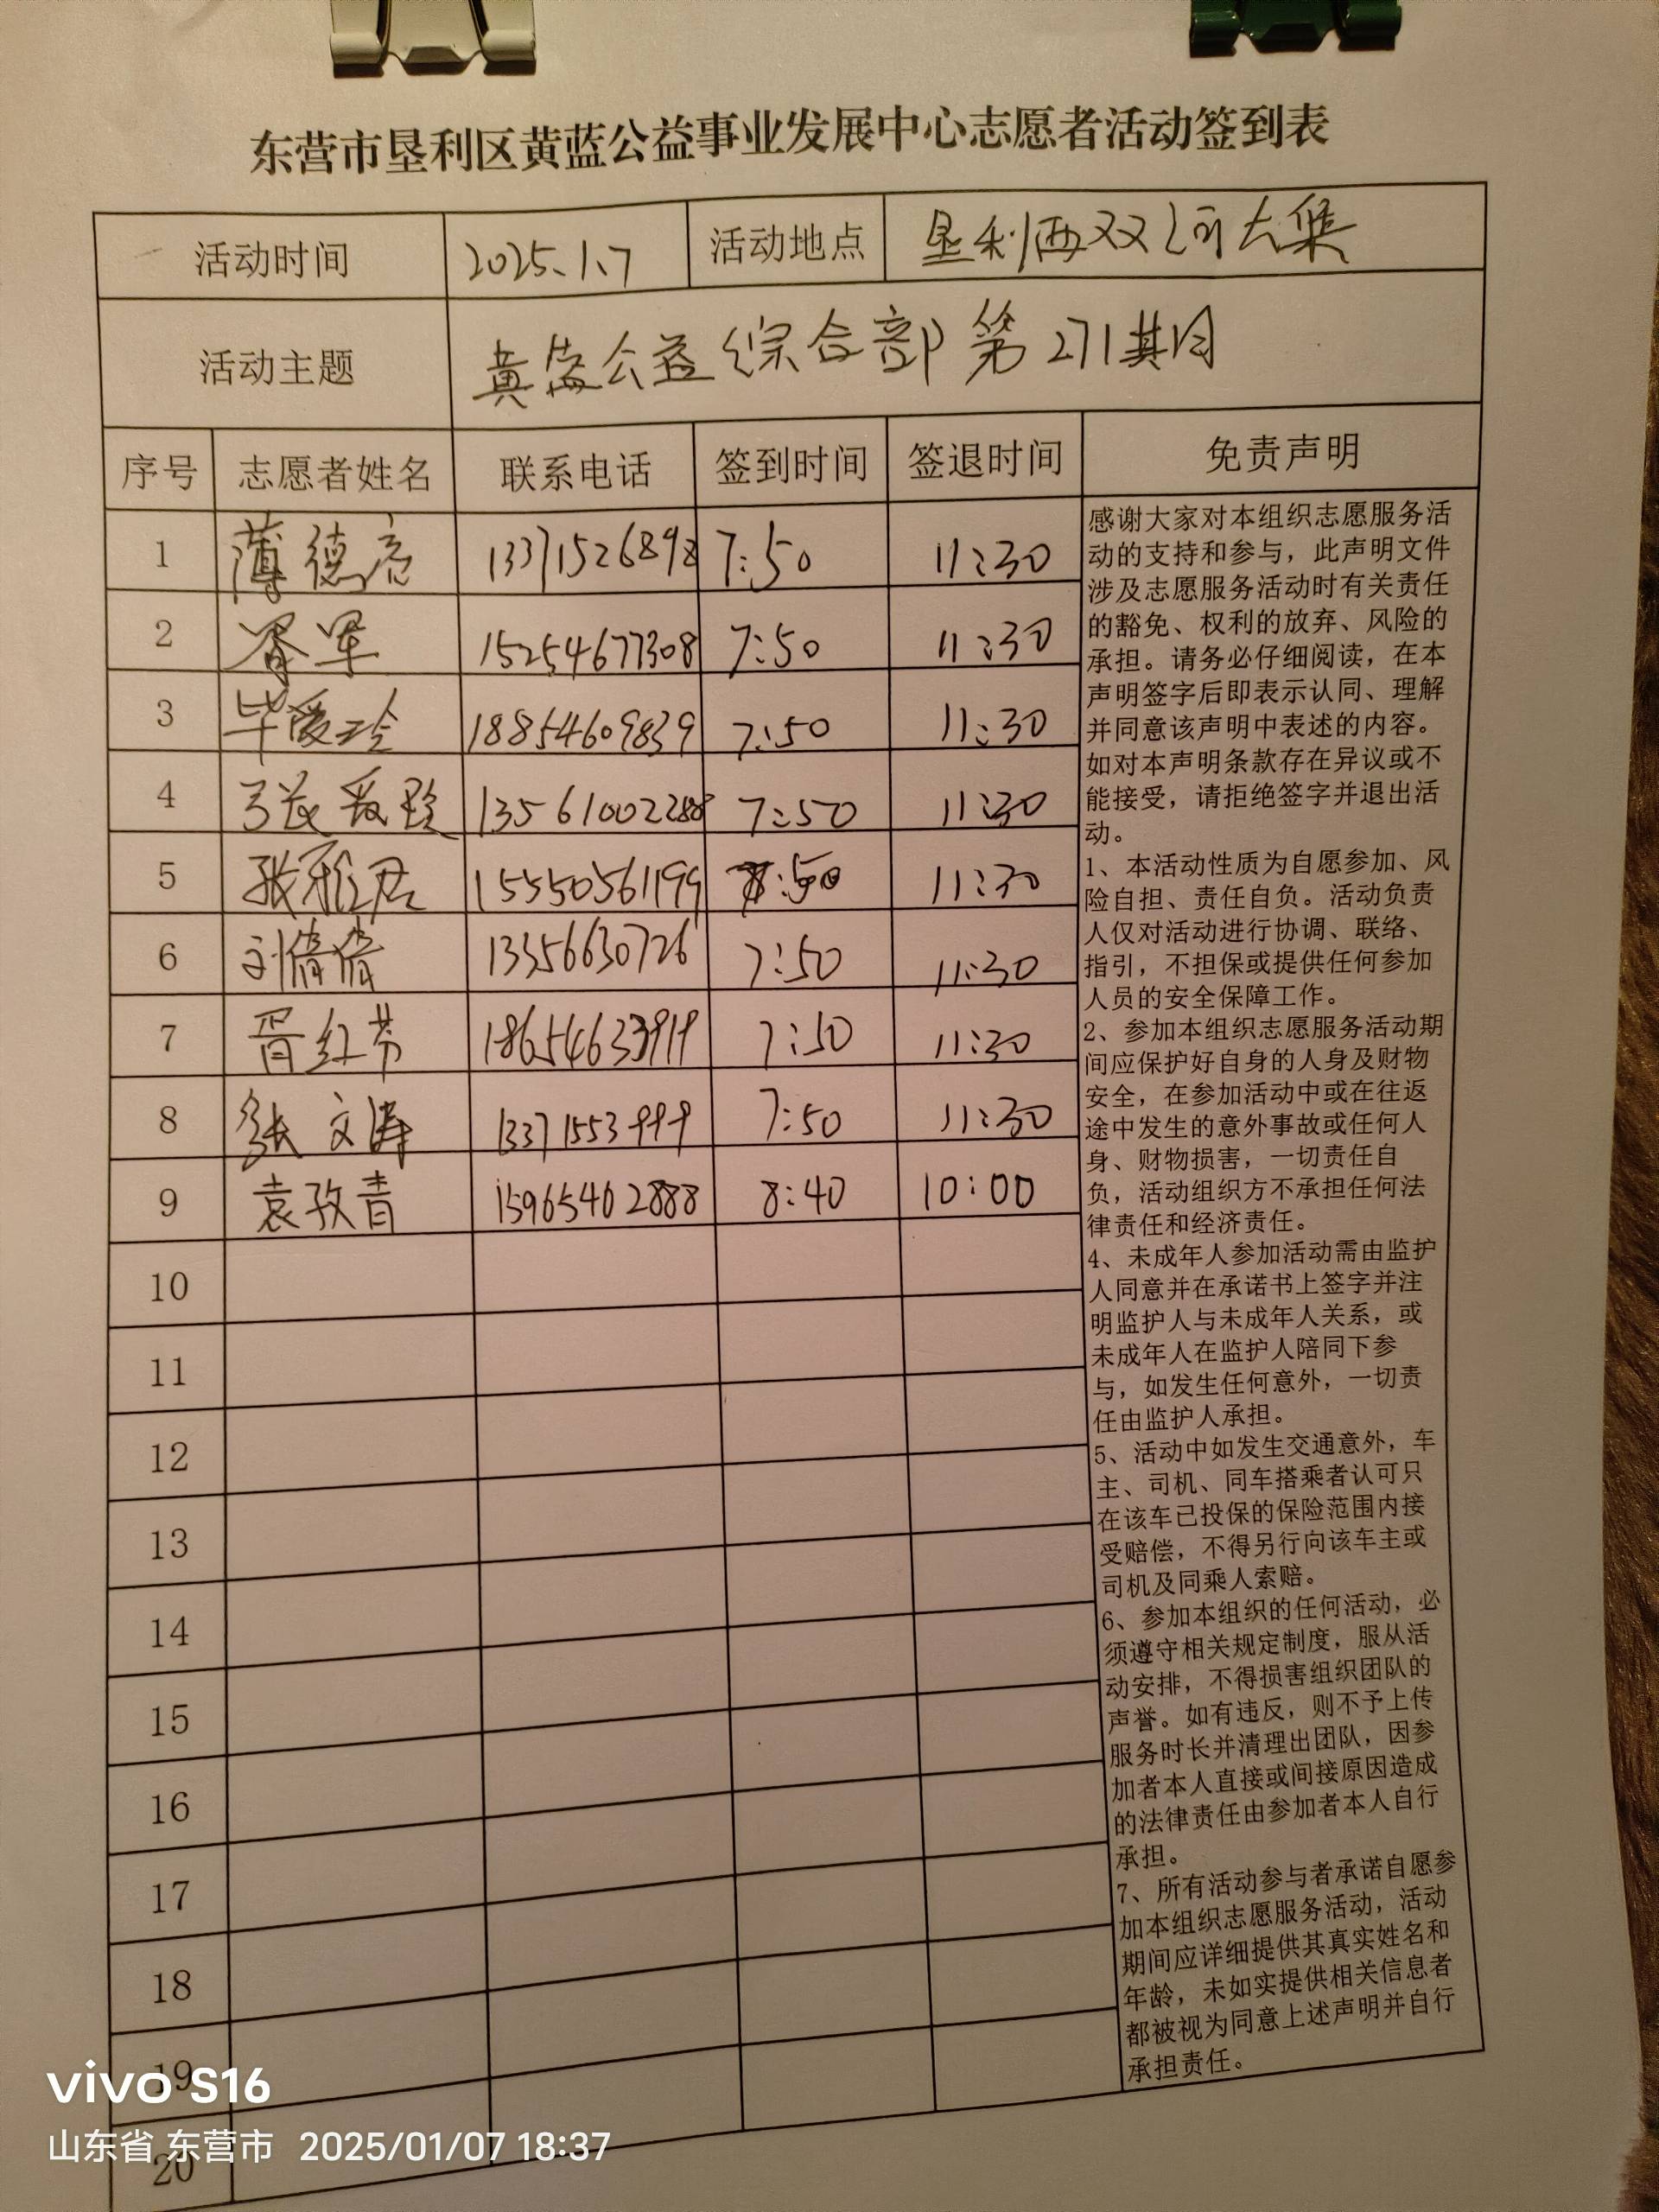 东营市垦利区黄蓝公益事业发展中心志愿者活动签到表
活动时间 2025.1.7 活动地点 垦利西双河大集
活动主题 黄蓝公益综合部第271期
序号 志愿者姓名 联系电话 签到时间 签退时间 免责声明
1 薄德亮 13371526898 7:50 11:30
2 胥军 15254677308 7:50 11:30
3 毕爱玲 18854609839 7:50 11:30
4 爱玲 13561002288 7:50 11:30
5 张雅君 15550561199 7:50 11:30
6 刘倩倩 13356630726 7:50 11:30
7 胥红芳 18654633919 7:50 11:30
8 张文涛 13371553999 7:50 11:30
9 袁孜青 15965402888 8:40 10:00
10
11
12
13
14
15
16
17
18
19
20
感谢大家对本组织志愿服务活
动的支持和参与，此声明文件
涉及志愿服务活动时有关责任
的豁免、权利的放弃、风险的
承担。请务必仔细阅读，在本
声明签字后即表示认同、理解
并同意该声明中表述的内容。
如对本声明条款存在异议或不
能接受，请拒绝签字并退出活
动。
1、本活动性质为自愿参加、风
险自担、责任自负。活动负责
人仅对活动进行协调、联络、
指引，不担保或提供任何参加
人员的安全保障工作。
2、参加本组织志愿服务活动期
间应保护好自身的人身及财物
安全，在参加活动中或在往返
途中发生的意外事故或任何人
身、财物损害，一切责任自
负，活动组织方不承担任何法
律责任和经济责任。
4、未成年人参加活动需由监护
人同意并在承诺书上签字并注
明监护人与未成年人关系，或
未成年人在监护人陪同下参
与，如发生任何意外，一切责
任由监护人承担。
5、活动中如发生交通意外，车
主、司机、同车搭乘者认可只
在该车已投保的保险范围内接
受赔偿，不得另行向该车主或
司机及同乘人索赔。
6、参加本组织的任何活动，必
须遵守相关规定制度，服从活
动安排，不得损害组织团队的
声誉。如有违反，则不予上传
服务时长并清理出团队，因参
加者本人直接或间接原因造成
的法律责任由参加者本人自行
承担。
7、所有活动参与者承诺自愿参
加本组织志愿服务活动，活动
期间应详细提供其真实姓名和
年龄，未如实提供相关信息者
都被视为同意上述声明并自行
承担责任。
vivo S16
山东省 东营市 2025/01/07 18:37